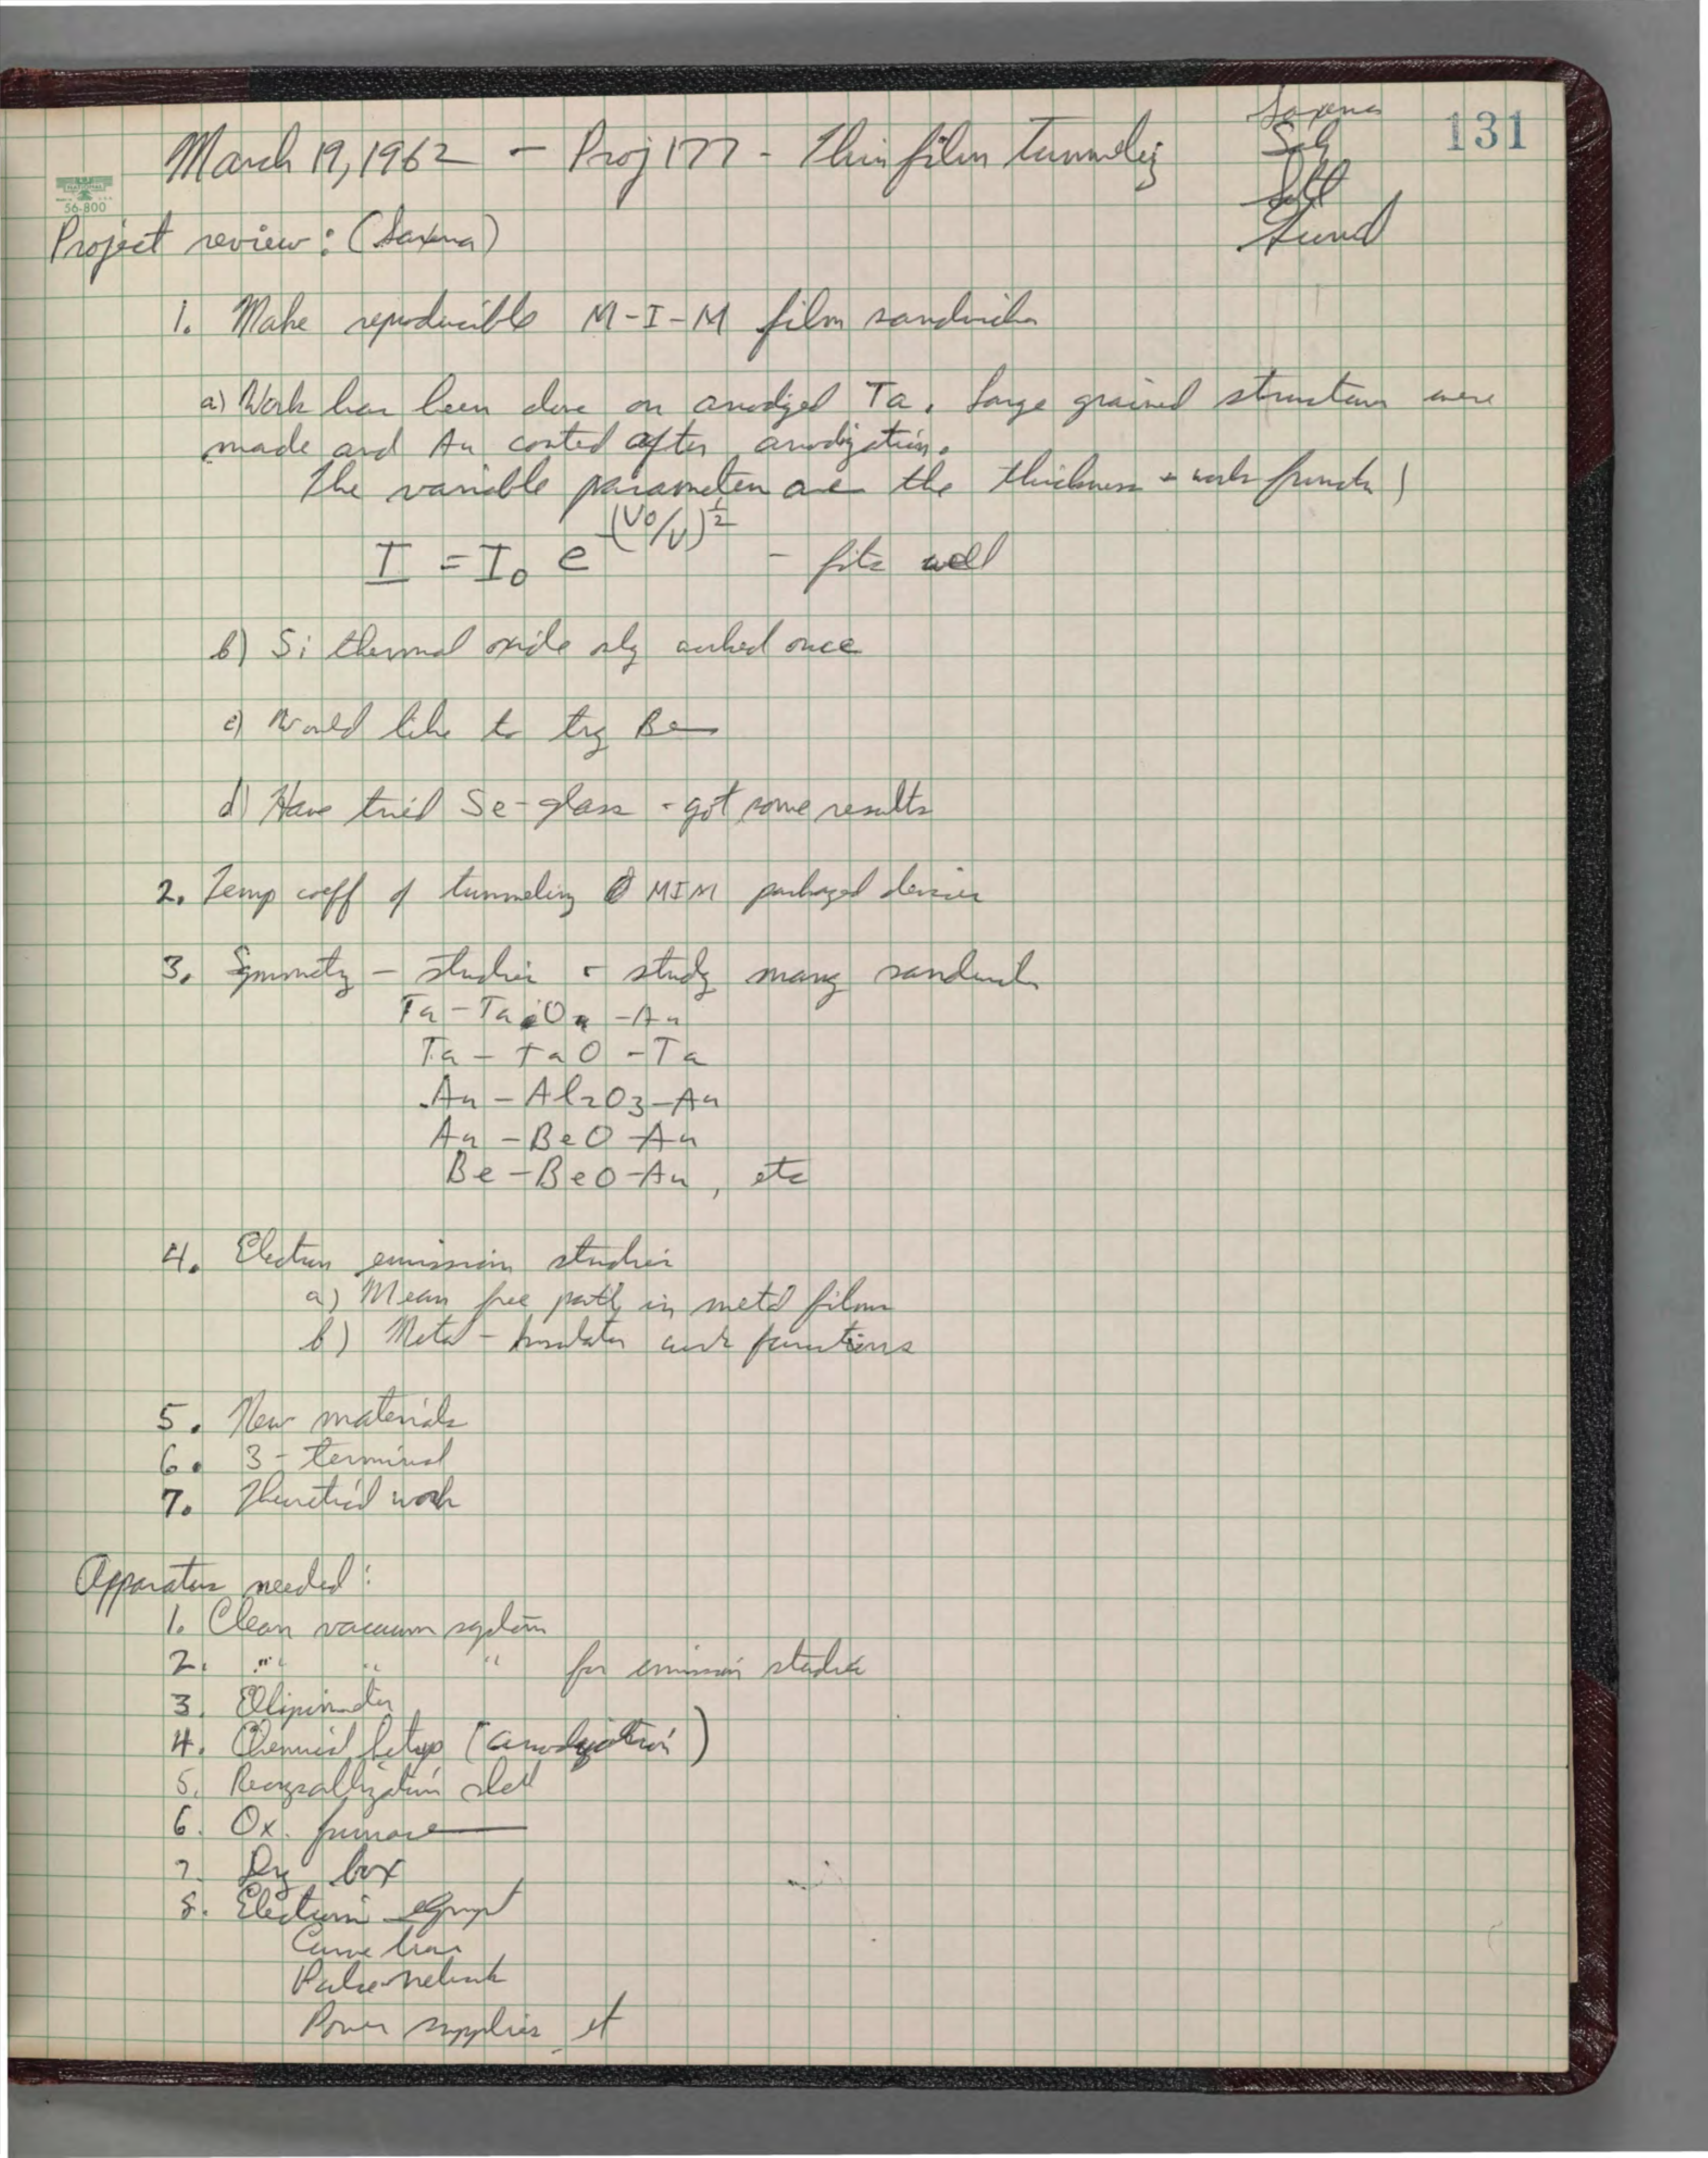 131
March 19, 1962 - Proj 177 - Thin film Tunneling
Saxena
Sah
NATIONAL
56-800
Project review: (Saxena)
1. Make reproducible M-I-M film sandwiches
a) Work has been done on anodized Ta. Large grained structures were
made and Au coated after anodization.
The variable parameters are the thickness + work function)
I = I0 e (V0/V)^1/2 - fits well
b) Si thermal oxide only worked once
c) Would like to try Be
d) Have tried Se-glass - got some results
2. Temp coeff of tunneling MIM packaged devices
3. Symmetry - studies - study many sandwiches
Ta - Ta O - Au
Ta - TaO - Ta
Au - Al2O3 - Au
Au - BeO - Au
Be - BeO - Au, etc
4. Electron emission studies
a) Mean free path in metal films
b) Metal - Insulator work functions
5. New materials
6. 3-terminal
7. Theoretical work
Apparatus needed:
1. Clean vacuum system
2. " " " for emission studies
3. Ellipsometer
4. Chemical Setup (anodization)
5. Recrystallization
6. Ox. furnace
7. Dry box
8. Electronic equipt
Curve tracer
Pulse
Power supplies, et